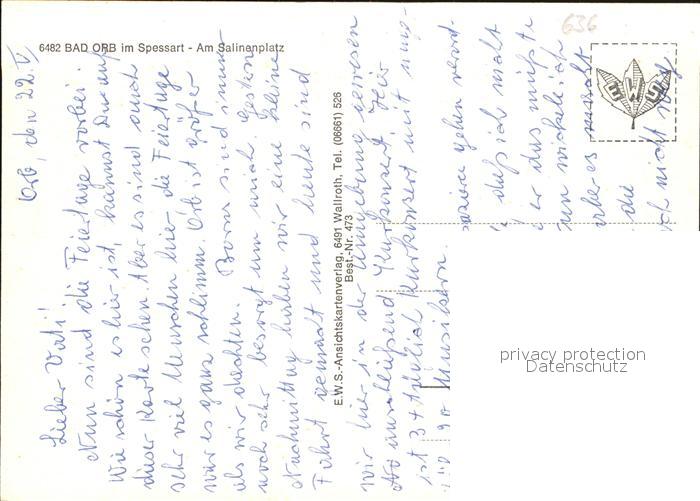 6482 BAD ORB im Spessart - Am Salinenplatz
636
EWS
E.W.S.-Ansichtskartenverlag, 6491 Wallroth, Tel. (06661) 526
Best.-Nr. 473
Orb, den 22. V.
Lieber Vati!
Nun sind die Feiertage vorbei.
Wie schön es hier ist, kannst Du auf
dieser Karte sehen. Aber es sind auch
sehr viel Menschen hier die Feiertage
war es ganz schlimm. Orb ist größer
als wir dachten. sind immer
noch sehr besorgt um mich. Gestern
Nachmittag haben wir eine kleine
Fahrt gemacht und heute sind
wir hier in der Umgebung gewesen
anschließend Kurkonzert. Hier
ist 3 x täglich Kurkonzert mit ung-
90 Musikern.
gehen
daß ich nicht
er das müßte
aber es macht
die
ich nicht
privacy protection
Datenschutz